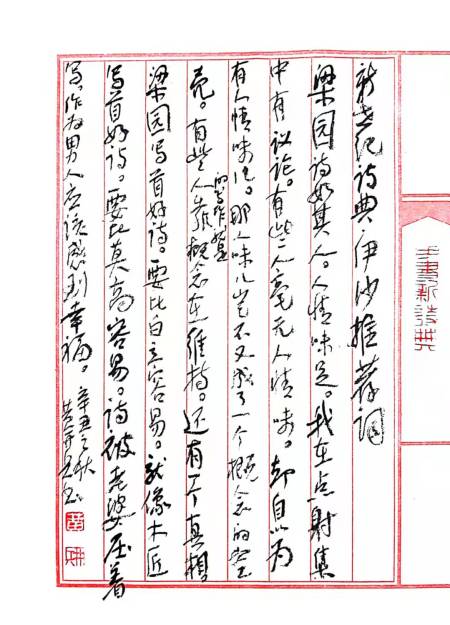 手书新诗典
新世纪诗典·伊沙推荐词
梁园诗如其人。人情味足。我在点射集
中有议论。有些人毫无人情味。却自以为
有人情味儿。那人味儿岂不又成了一个概念的空
壳。有些人的写作是靠概念在维持。还有个真相
梁园写首好诗。要比白立容易。就像木匠
写首好诗。要比真高容易。诗被老婆压着
写。作为男人应该感到幸福。
辛丑之秋
黄开兵书